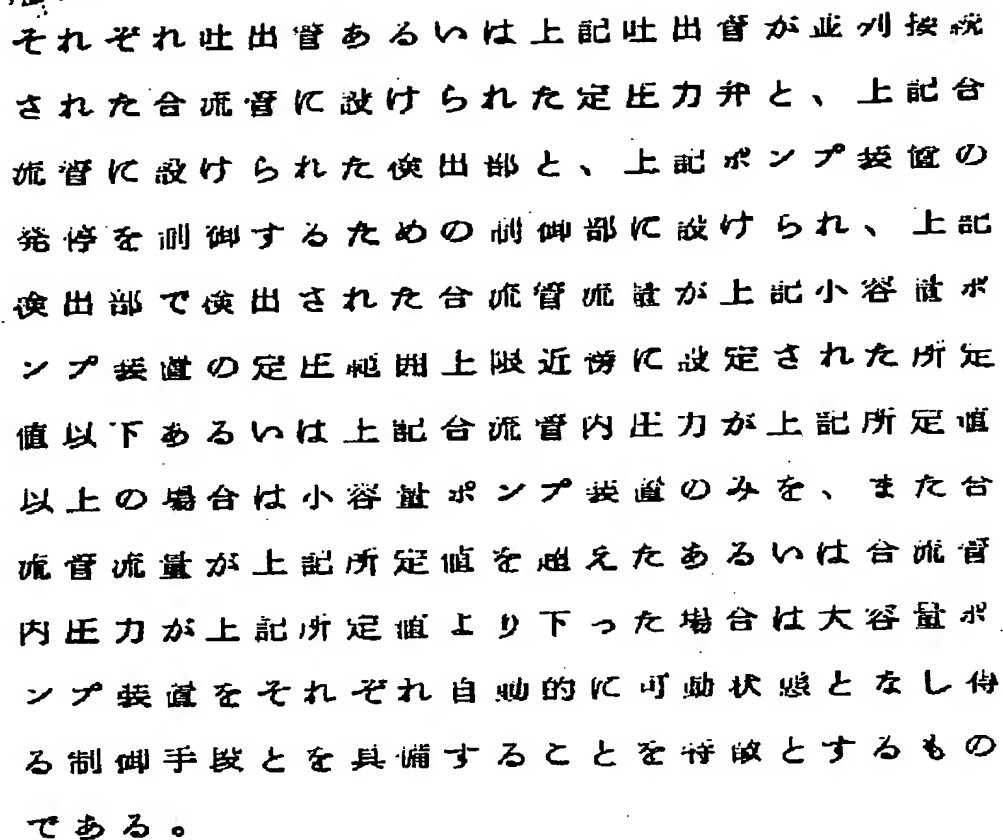 それぞれ吐出管あるいは上記吐出管が並列接続
された合流管に設けられた定圧力弁と、上記合
流管に設けられた検出部と、上記ポンプ装置の
発停を制御するための制御部に設けられ、上記
検出部で検出された合流管流量が上記小容量ポ
ンプ装置の定圧範囲上限近傍に設定された所定
値以下あるいは上記合流管内圧力が上記所定値
以上の場合は小容量ポンプ装置のみを、また合
流管流量が上記所定値を超えたあるいは合流管
内圧力が上記所定値より下った場合は大容量ポ
ンプ装置をそれぞれ自動的に可動状態となし得
る制御手段とを具備することを特徴とするもの
である。